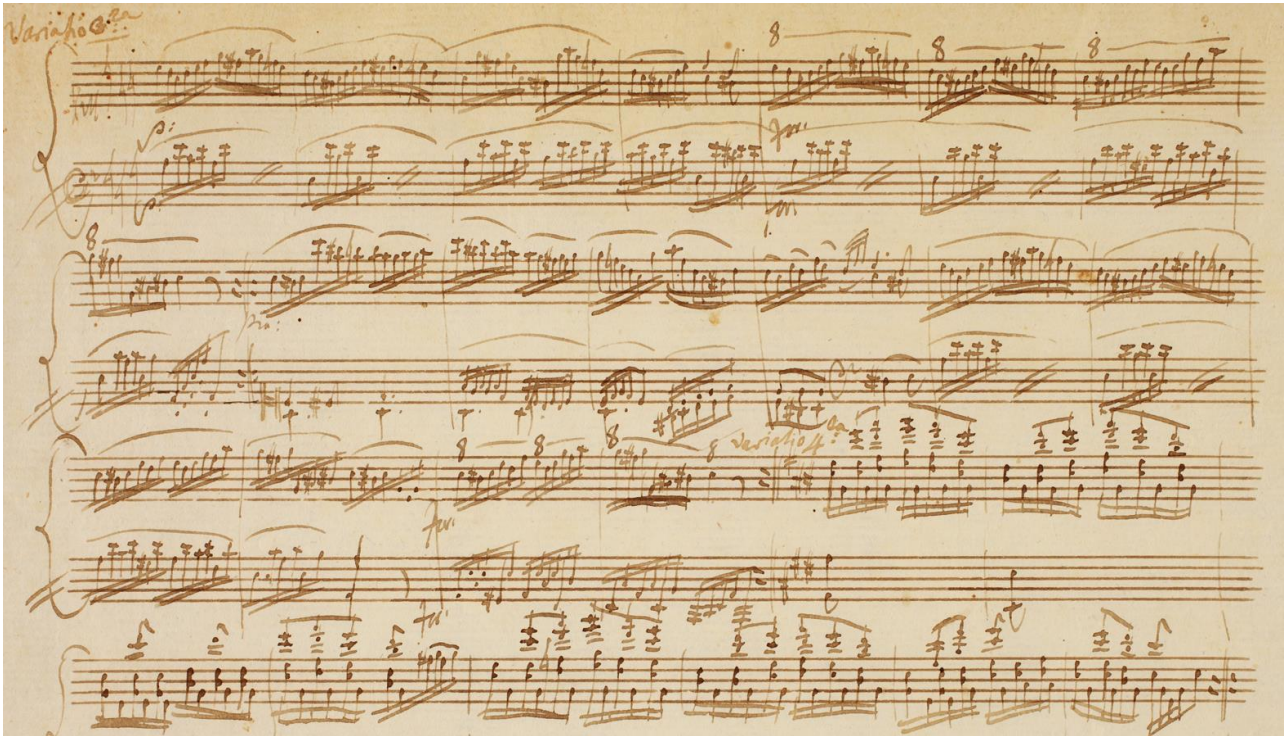 Variatio 3za
8 8 8
p: for:
p:
8
pia:
8 8 8 8 Variatio 4ta
for:
for: